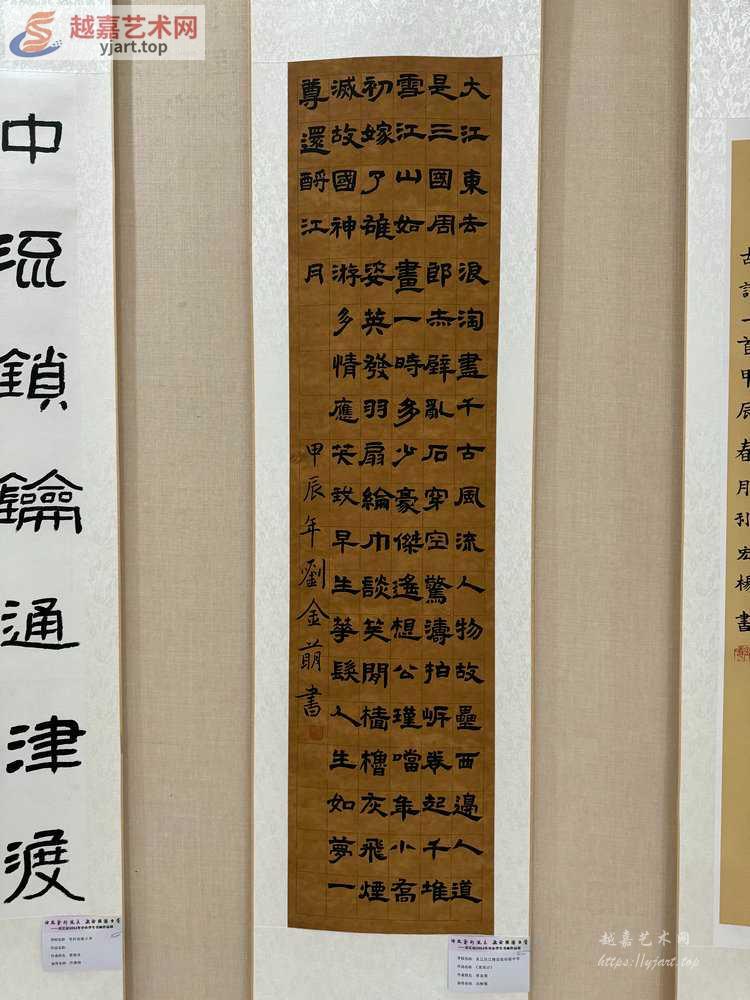 越嘉艺术网
yjart.top
古詩一首甲辰春月孙宏楊書
大江東去浪淘盡千古風流人物故壘西邊人道
是三國周郎赤壁亂石穿空驚濤拍岍卷起千堆
雪江山如畫一時多少豪傑遙想公瑾噹年小喬
初嫁了雄姿英發羽扇綸巾談笑閒檣櫓灰飛煙
滅故國神游多情應笑我早生華髮人生如夢一
尊還酹江月
甲辰年劉金萌書
中流鎖鑰通津渡
越嘉艺术网
https://yjart.top